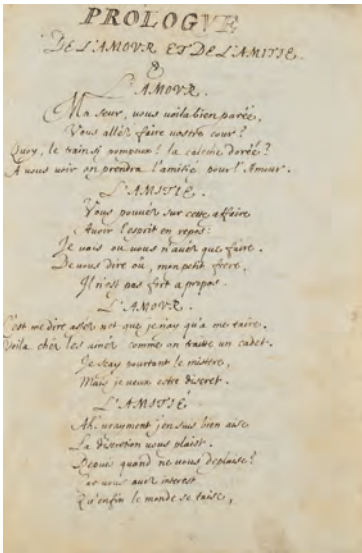 PROLOGVE
DE L'AMOVR ET DE L'AMITIE.
L'AMOVR.
Ma seur, vous voila bien parée,
Vous allés faire vostre cour?
Quoy, le train si pompeux! la caleche dorée?
A vous voir on prendra l'amitié pour l'Amour.
L'AMITIE.
Vous pouvés sur cette affaire
Avoir l'esprit en repos:
Je vais ou vous n'avés que faire.
De vous dire où, mon petit frere,
Il n'est pas fort a propos.
L'AMOVR.
C'est me dire assés net que je n'ay qu'a me taire.
Voila chés les ainés comme on traitte un cadet.
Je sçay pourtant le mistere,
Mais je veux estre discret.
L'AMITIÉ
Ah! vrayment j'en suis bien aise
La discretion vous plaist.
Depuis quand ne vous deplaise?
Car vous avés interest
Qu'enfin le monde se taise,